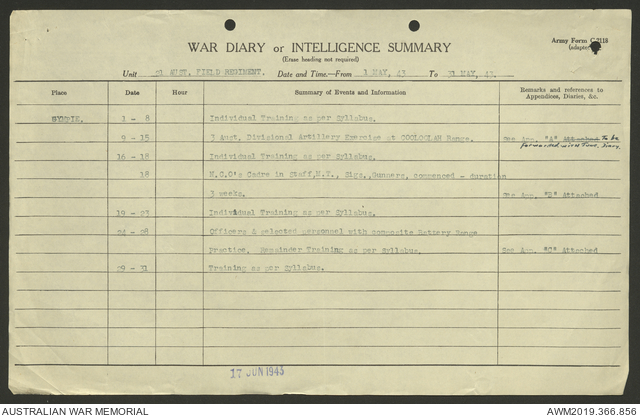 Army Form C.2118
(adapted)
WAR DIARY or INTELLIGENCE SUMMARY
(Erase heading not required)
Unit AUST. FIELD REGIMENT. Date and Time.—From 1 MAY, 43 To 31 MAY, 43.
Place Date Hour Summary of Events and Information Remarks and references to Appendices, Diaries, &c.
GYMPIE. 1 - 8 Individual Training as per Syllabus.
9 - 15 3 Aust. Divisional Artillery Exercise at COOLOOLAH Range. See App. "A" Attached To be
forwarded with June, Diary.
16 - 18 Individual Training as per Syllabus.
18 N.C.O's Cadre in Staff, M.T., Sigs., Gunners, commenced - duration
3 weeks. See App. "B" Attached
19 - 23 Individual Training as per Syllabus.
24 - 28 Officers & selected personnel with composite Battery Range
practice. Remainder Training as per Syllabus. See App. "C" Attached
29 - 31 Training as per Syllabus.
17 JUN 1943
AUSTRALIAN WAR MEMORIAL AWM2019.366.856